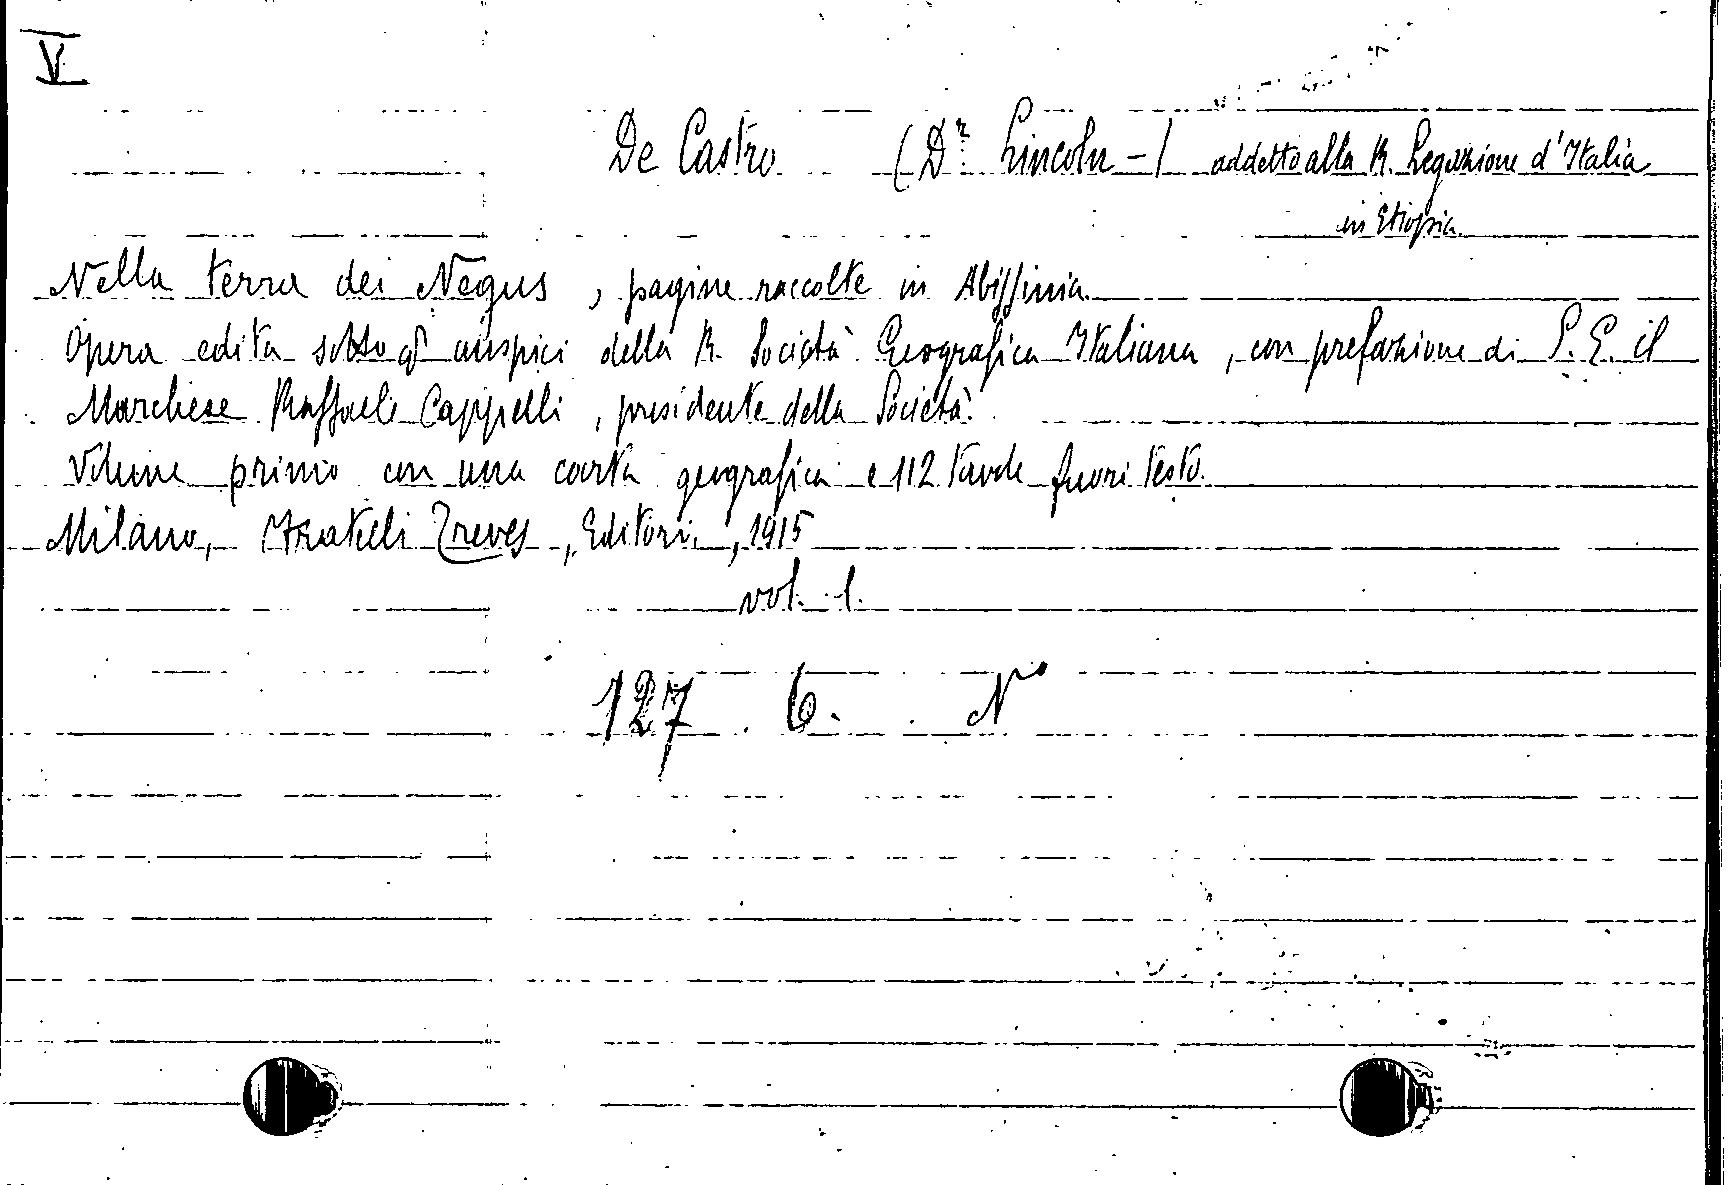 V
De Castro (Dr Lincoln -) addetto alla R. Legazione d'Italia
in Etiopia.
Nella terra dei Negus, pagine raccolte in Abissinia.
Opera edita sotto gli auspici della R. Società Geografica Italiana, con prefazione di S. E. il
Marchese Raffaele Cappelli, presidente della Società.
Volume primo con una carta geografica e 112 tavole fuori testo.
Milano, Fratelli Treves, Editori, 1915
vol. 1.
127 . 6. No